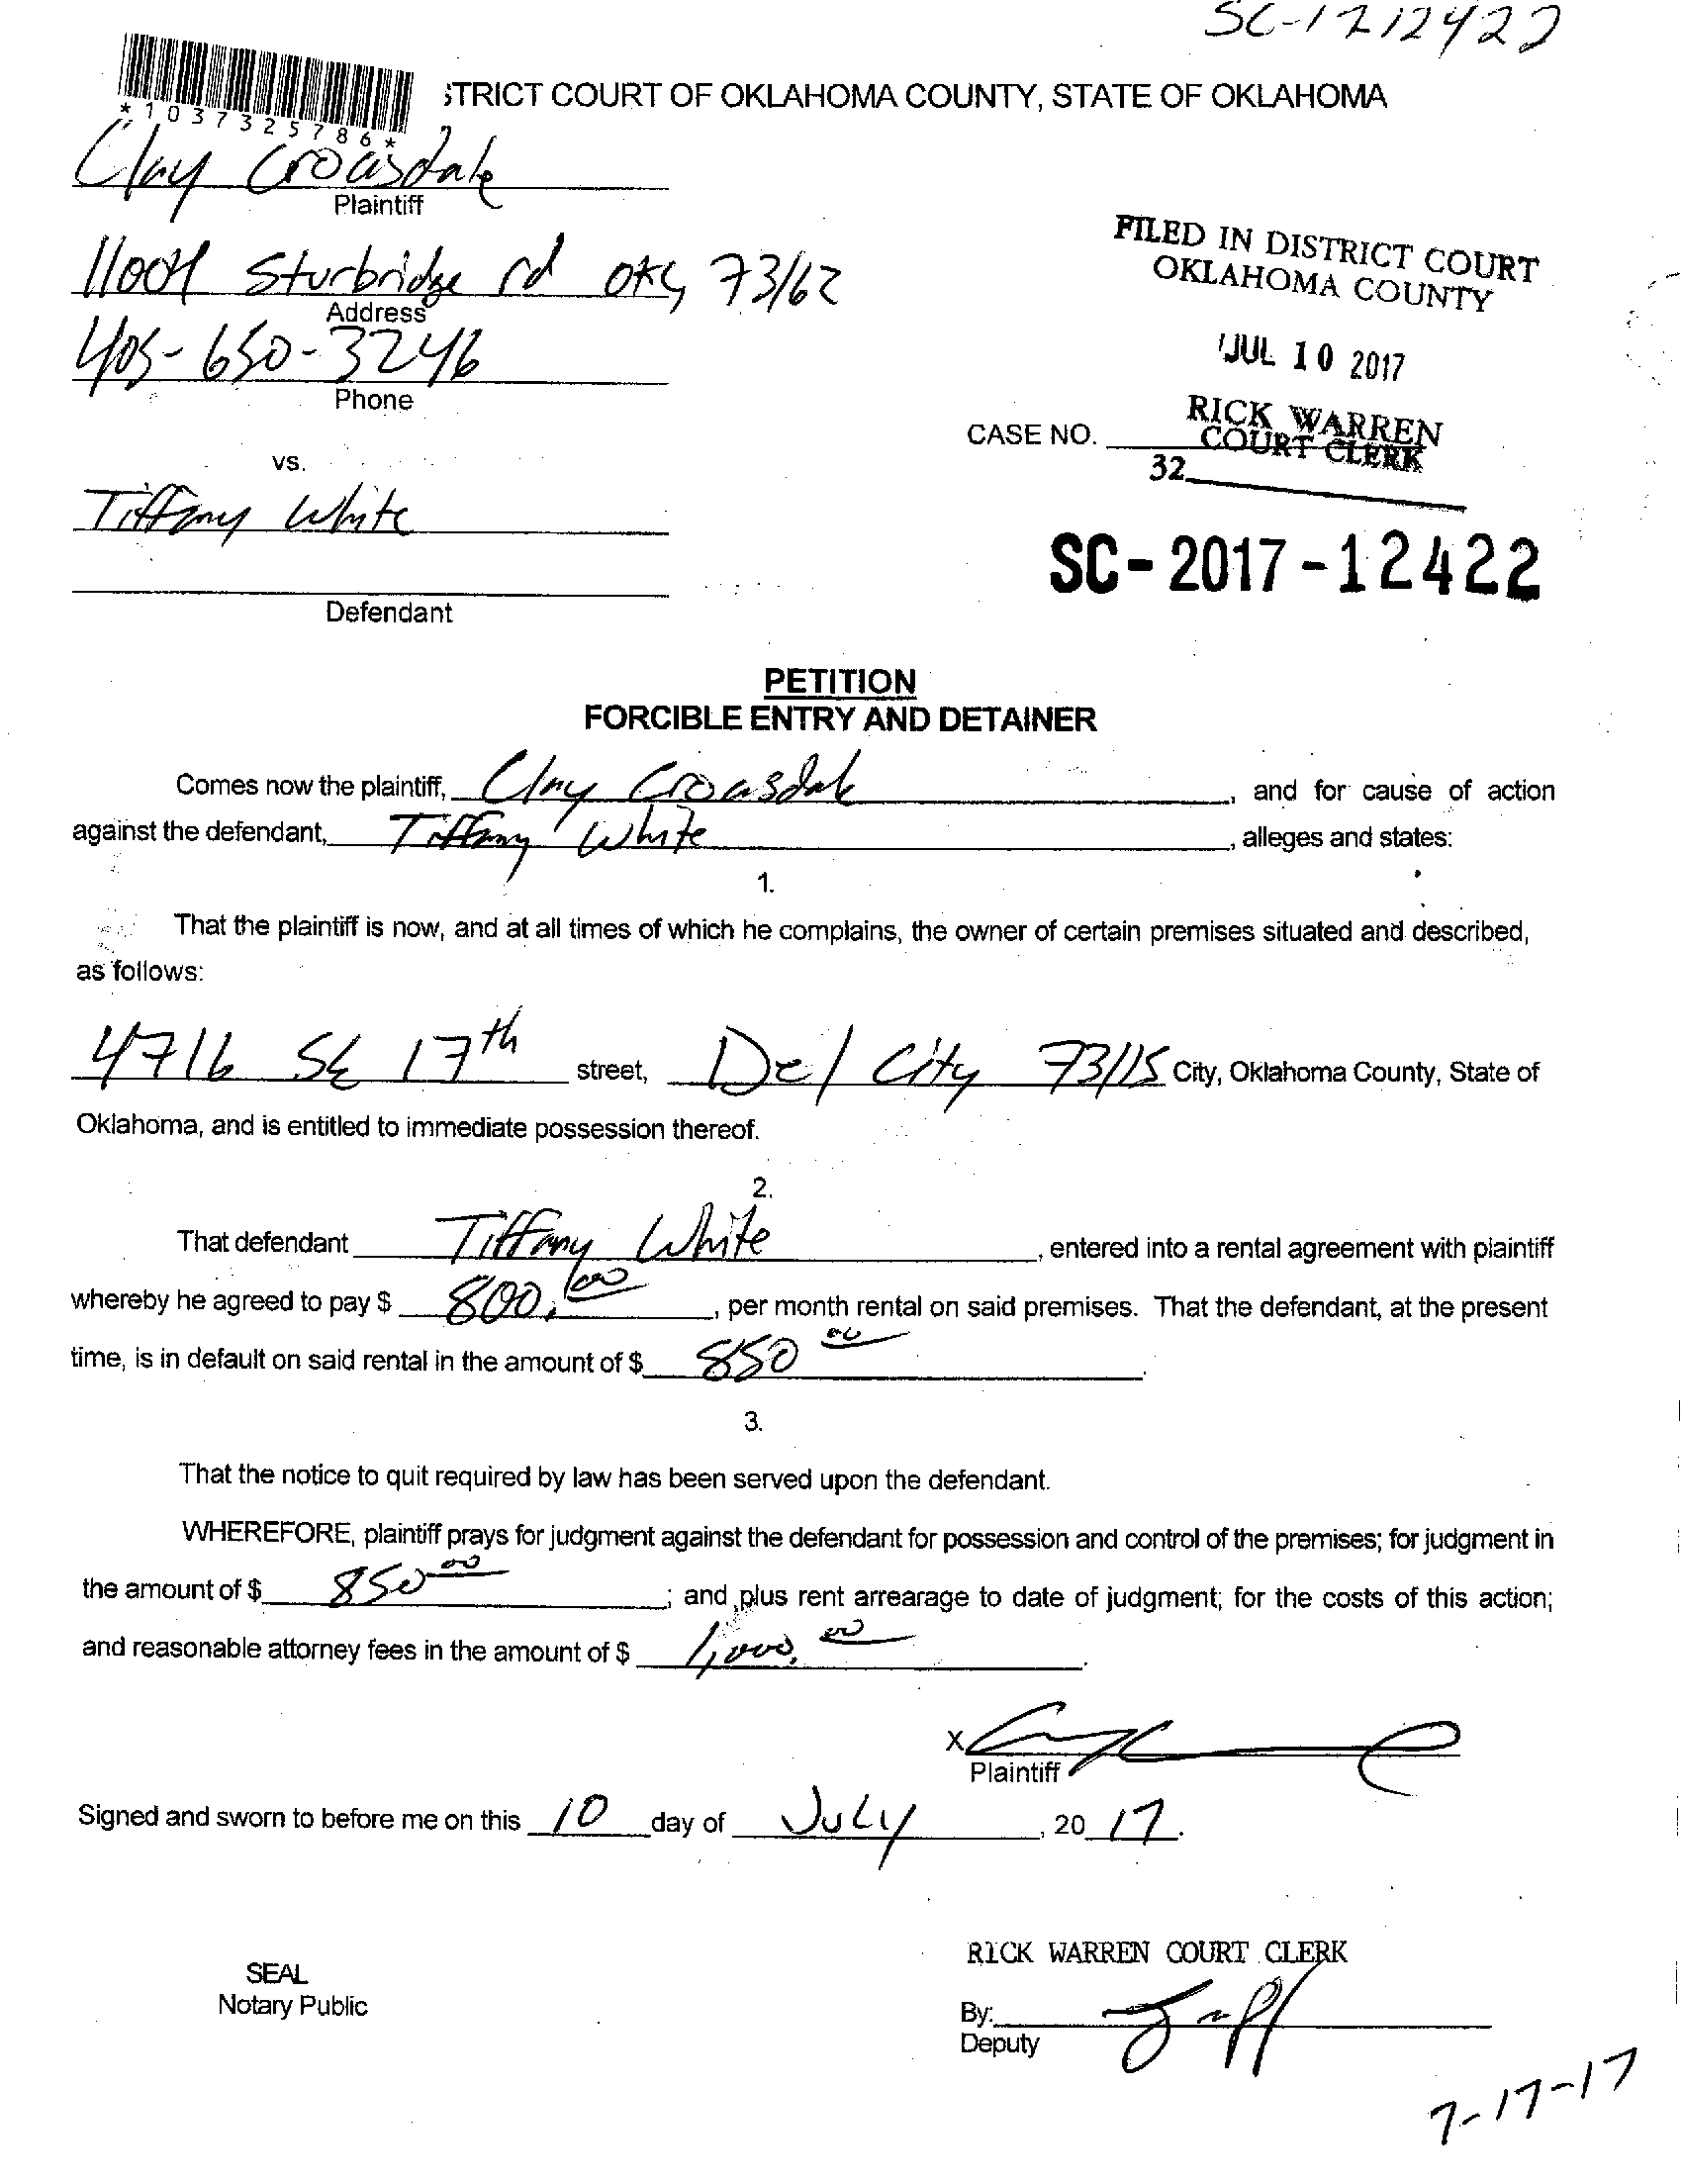 SC-1712422
*1037325786*
STRICT COURT OF OKLAHOMA COUNTY, STATE OF OKLAHOMA
Clay Croasdale
Plaintiff
FILED IN DISTRICT COURT
OKLAHOMA COUNTY
Sturbridge rd OKC 73162
Address
JUL 10 2017
405-650-3246
Phone
RICK WARREN
COURT CLERK
CASE NO.
32
vs.
Tiffany White
SC-2017-12422
Defendant
PETITION
FORCIBLE ENTRY AND DETAINER
Comes now the plaintiff, Clay Croasdale, and for cause of action
against the defendant, Tiffany White, alleges and states:
1.
That the plaintiff is now, and at all times of which he complains, the owner of certain premises situated and described,
as follows:
4716 SE 17th street, Del City 73115 City, Oklahoma County, State of
Oklahoma, and is entitled to immediate possession thereof.
2.
That defendant Tiffany White, entered into a rental agreement with plaintiff
whereby he agreed to pay $ 800.00, per month rental on said premises. That the defendant, at the present
time, is in default on said rental in the amount of $ 850 00.
3.
That the notice to quit required by law has been served upon the defendant.
WHEREFORE, plaintiff prays for judgment against the defendant for possession and control of the premises; for judgment in
the amount of $ 850 00; and plus rent arrearage to date of judgment; for the costs of this action;
and reasonable attorney fees in the amount of $ 1,000.00.
X
Plaintiff
Signed and sworn to before me on this 10 day of JULY, 20 17.
RICK WARREN COURT CLERK
SEAL
Notary Public
By:
Deputy
7-17-17